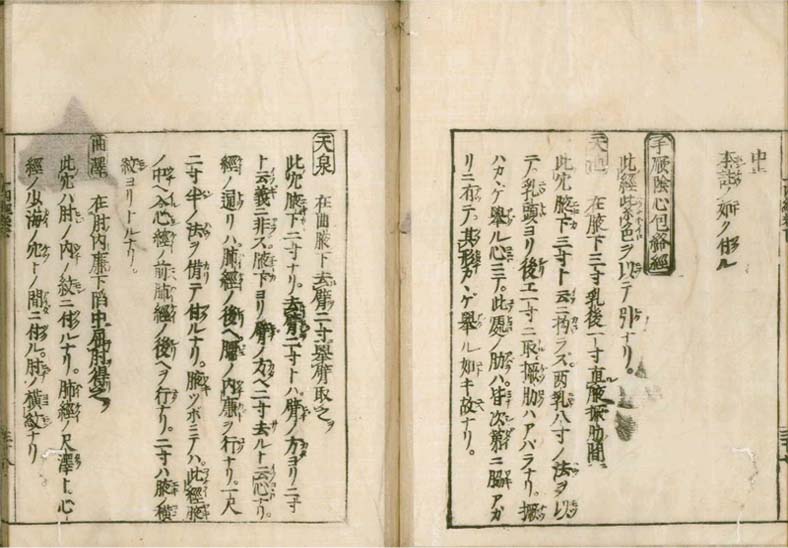 中
李
手厥陰心包絡經
此経紫色ヲ以テ引ナリ。
天 在腋下三寸乳後一寸直腋撅肋間
此穴腋下三寸ト云ニ拘ラズ。両乳八寸ノ法ヲ以
テ。乳頭ヨリ後エ一寸ニ取。撅肋ハアバラナリ。撅
ハカヽゲ舉ル心ミテ。此處ノ肋ハ皆次第ニ脇アガ
リニ有テ。其形カヽゲ舉ル如キ故ナリ。
天泉 在曲腋下去臂二寸舉臂取之
此穴腋下二寸ナリ。去臂二寸トハ臂ノ方ヨリ二寸
ト云義ニ非ス。腋下ヨリ臂ノ方ヘ二寸去ルト云心ナリ。
經ノ通リハ肺經ノ後ヘ臑ノ内廉ヲ行ナリ。一尺
二寸半ノ法ヲ借テ付ルナリ。腋ツボミテハ。此經腋
ノ中ヘ入心經ノ前肺經ノ後ヘヲ行ナリ。二寸ハ腋ノ横
紋ヨリトルナリ。
曲澤 在肘内廉下陷中屈肘得之
此穴ハ肘ノ内ノ紋ニ付ルナリ。肺經ノ尺澤ト心
經ノ少海ノ穴トノ間ニ付ル。肘ノ横紋ナリ